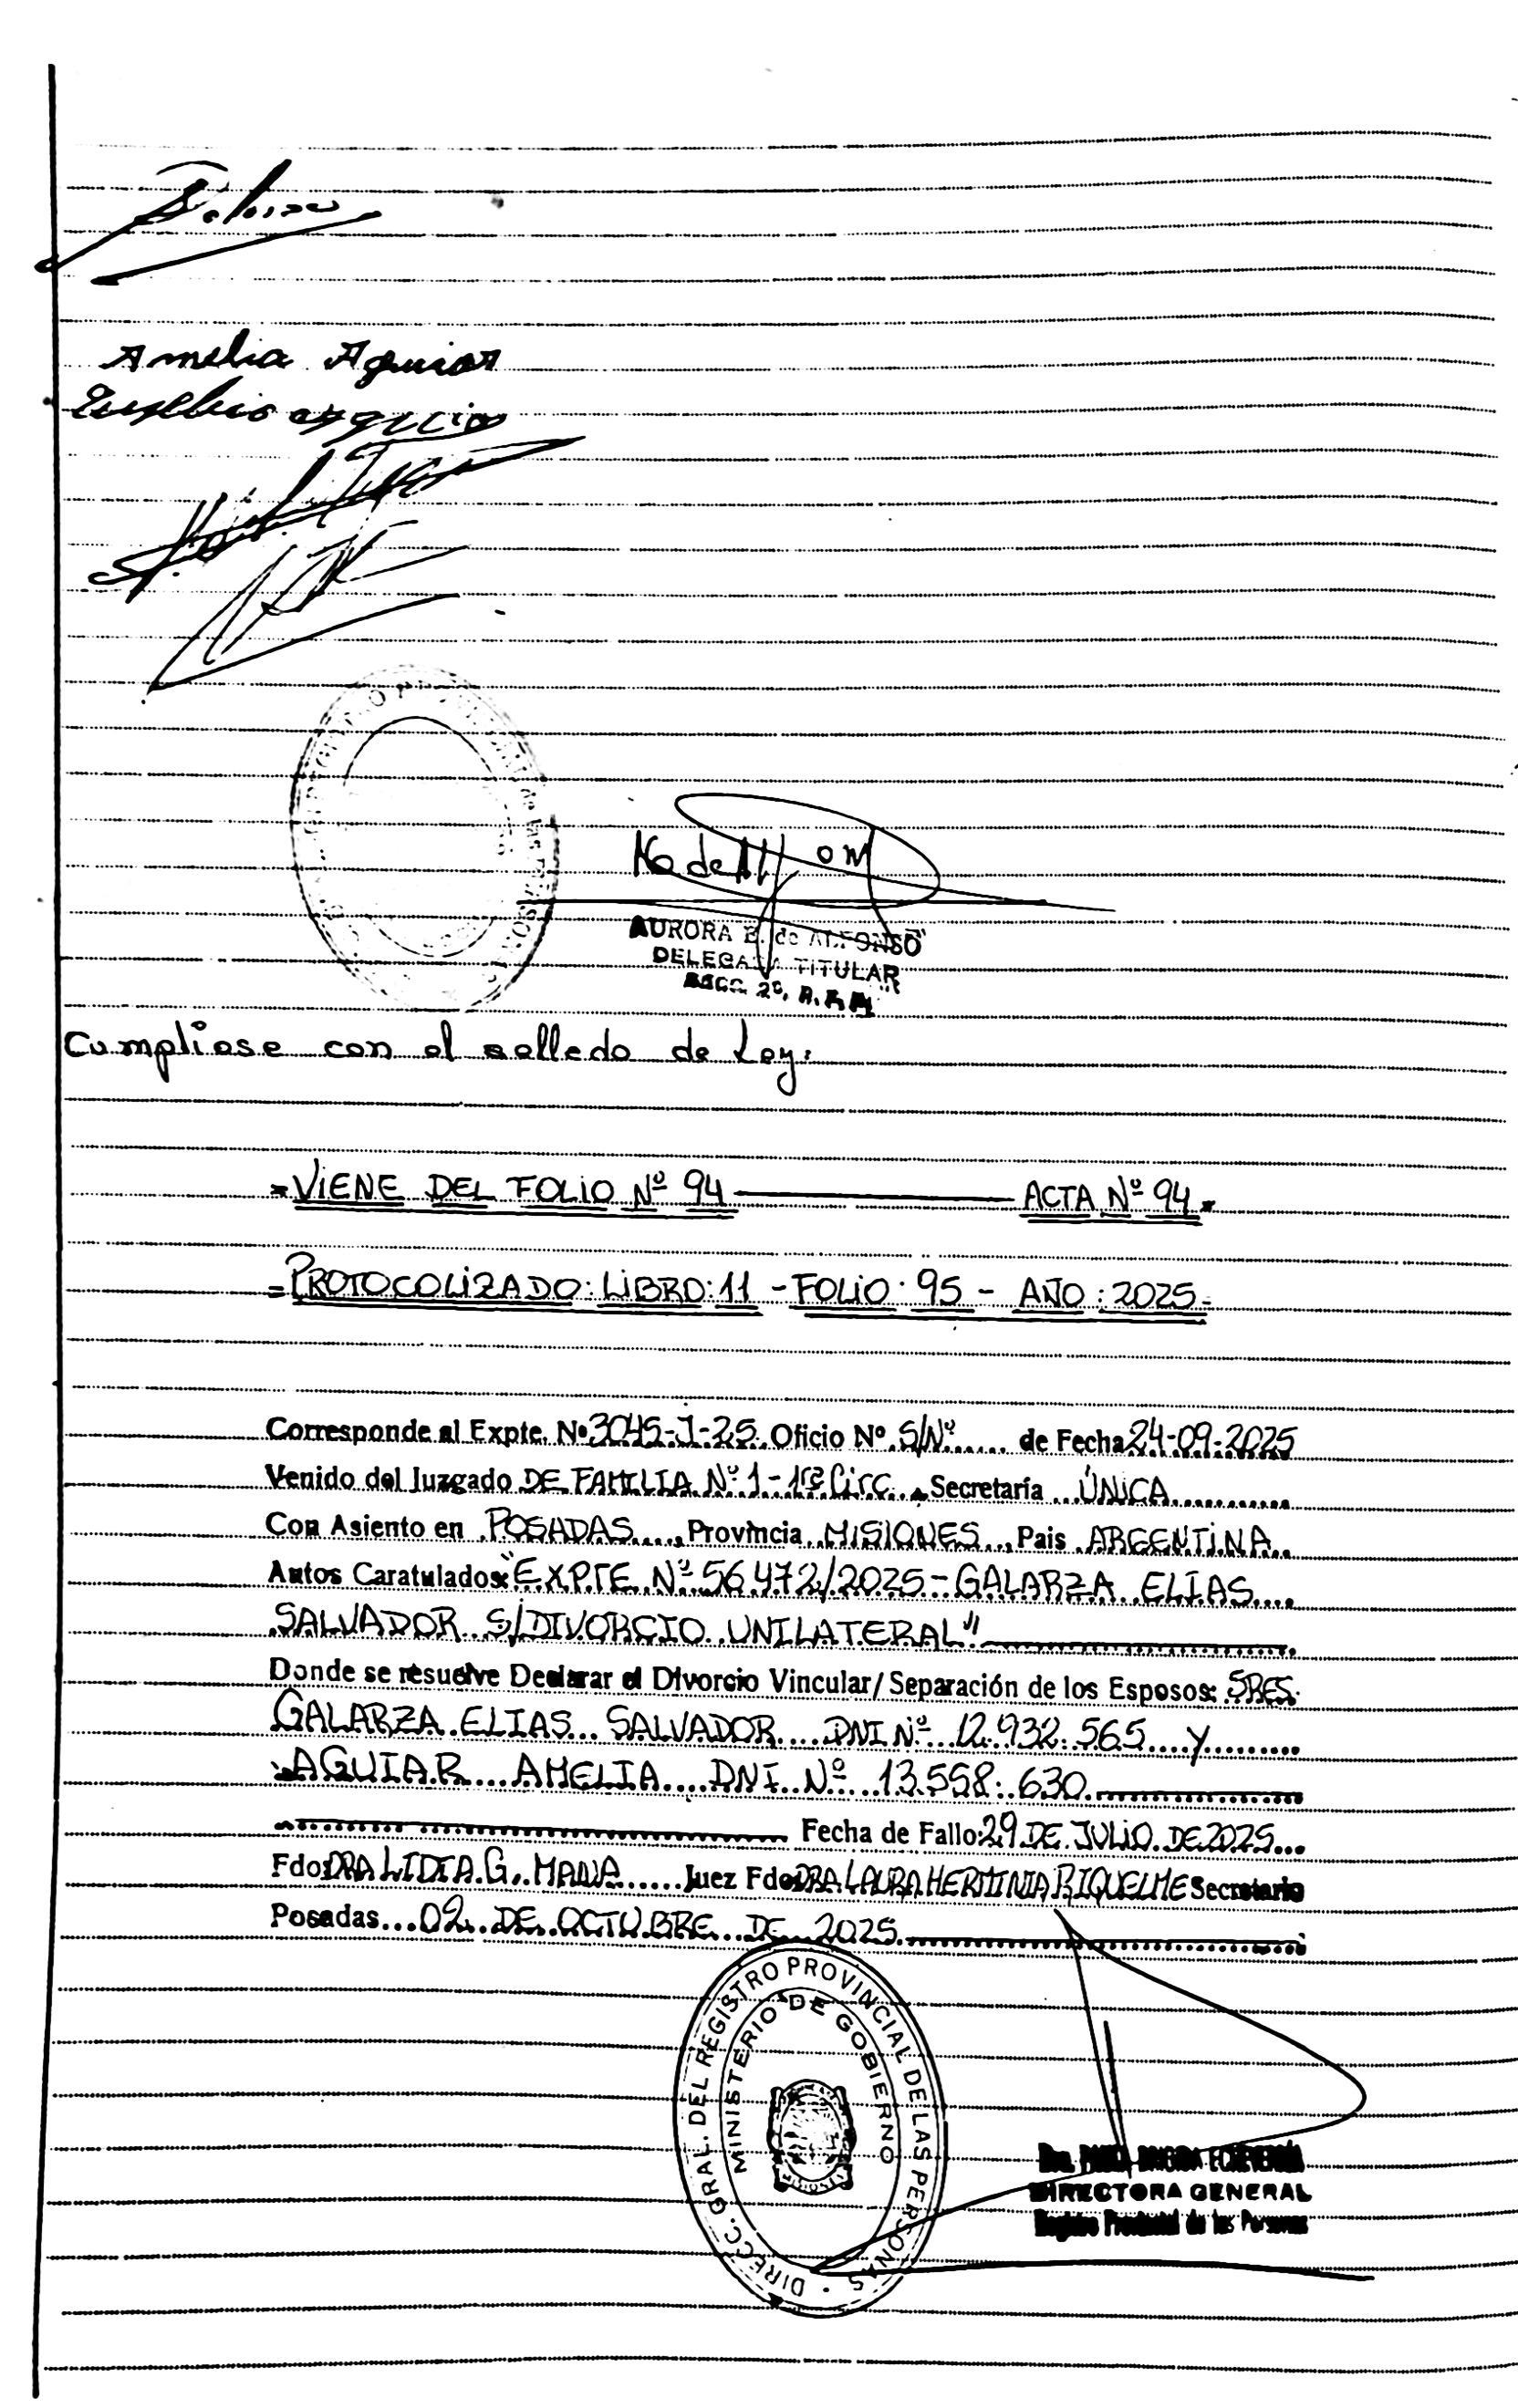 Amelia Aguiar
AURORA B. de ALFONSO
DELEGADA TITULAR
Cumpliose con el sellado de Ley.
=VIENE DEL FOLIO Nº 94 ACTA Nº 94=
=PROTOCOLIZADO: LIBRO: 11 - FOLIO: 95 - AÑO: 2025=
Corresponde al Expte. Nº 3045-J-25 Oficio Nº S/Nº de Fecha 24-09-2025
Venido del Juzgado DE FAMILIA Nº 1 - 1ra Circ. Secretaría ÚNICA
Con Asiento en POSADAS, Provincia MISIONES, Pais ARGENTINA
Autos Caratulados: "EXPTE Nº 56472/2025 - GALARZA ELIAS
SALVADOR S/DIVORCIO UNILATERAL"
Donde se resuelve Declarar el Divorcio Vincular/ Separación de los Esposos: SRES.
GALARZA ELIAS SALVADOR DNI Nº 12.932.565 y
AGUIAR AMELIA DNI Nº 13.558.630
Fecha de Fallo: 29 DE JULIO DE 2025
Fdo: DRA LIDIA G. MANA Juez Fdo: DRA LAURA HERMINIA RIQUELME Secretario
Posadas 02 DE OCTUBRE DE 2025
DIRECC. GRAL. DEL REGISTRO PROVINCIAL DE LAS PERSONAS
MINISTERIO DE GOBIERNO
DIRECTORA GENERAL
Registro Provincial de las Personas